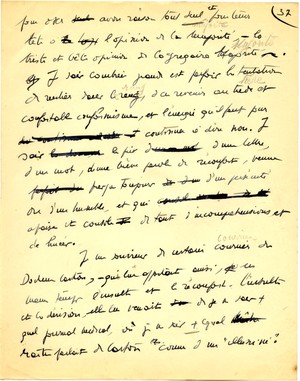 (32
pour oser avoir raison tout seul et pour tenir
tête à l'opinion de la majorité, – la
triste et bête opinion de la grégaire majorité. –
Je sais combien grand est parfois la tentation
de rentrer dans le rang, de revenir au tiède et
confortable conformisme, et l'énergie qu'il faut pour
continuer à dire non. Je
sais le prix d'une lettre,
d'un mot, d'une brève parole de réconfort, venue
presque toujours d'un
ou d'un humble, et qui
apaise et console de tant d'incompréhensions et
de haines.
Je me souviens de certains courriers du
Docteur Carton, – qui lui apportaient aussi, en
même temps l'insulte et le réconfort. L'insulte
et la dérision, elle lui venait de je ne sais
quel journal médical, où je ne sais quel
maître parlait de Carton comme d'un "illuminé".